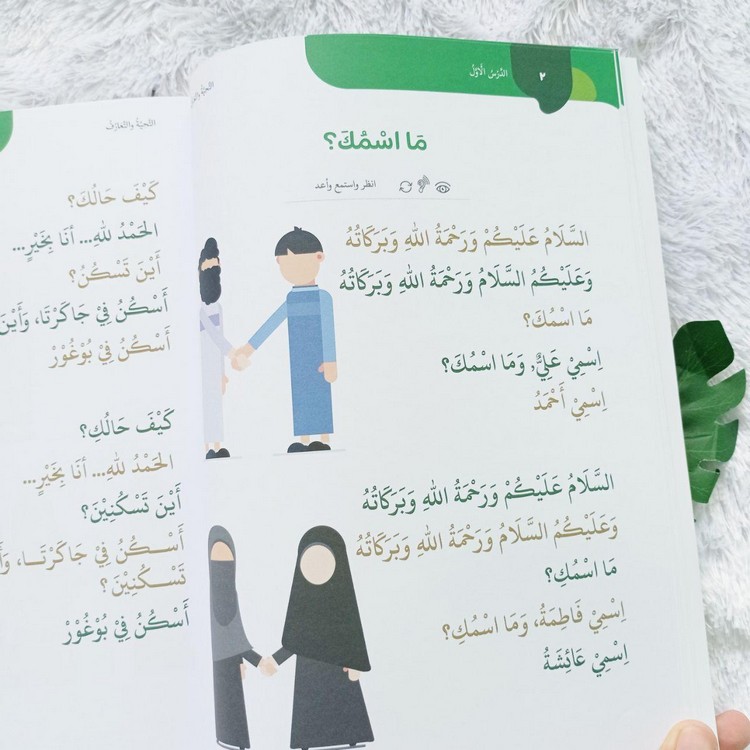 ٢
الدَّرْسُ الْأَوَّلُ
مَا اسْمُكَ؟
انظر واستمع وأعد
السَّلَامُ عَلَيْكُمْ وَرَحْمَةُ اللهِ وَبَرَكَاتُهُ
وَعَلَيْكُمُ السَّلَامُ وَرَحْمَةُ اللهِ وَبَرَكَاتُهُ
مَا اسْمُكَ؟
اِسْمِيْ عَلِيٌّ, وَمَا اسْمُكَ؟
اِسْمِيْ أَحْمَدُ
السَّلَامُ عَلَيْكُمْ وَرَحْمَةُ اللهِ وَبَرَكَاتُهُ
وَعَلَيْكُمُ السَّلَامُ وَرَحْمَةُ اللهِ وَبَرَكَاتُهُ
مَا اسْمُكِ؟
اِسْمِيْ فَاطِمَةُ، وَمَا اسْمُكِ؟
اِسْمِيْ عَائِشَةُ
التَّحِيَّةُ وَالتَّعَارُفُ
كَيْفَ حَالُكَ؟
الحَمْدُ للهِ... أَنَا بِخَيْرٍ...
أَيْنَ تَسْكُنُ؟
أَسْكُنُ فِيْ جَاكَرْتَا، وَأَيْنَ
أَسْكُنُ فِيْ بُوْغُوْرْ
كَيْفَ حَالُكِ؟
الحَمْدُ للهِ... أَنَا بِخَيْرٍ...
أَيْنَ تَسْكُنِيْنَ؟
أَسْـكُنُ فِيْ جَاكَرْتَـا،
تَسْـكُنِيْنَ ؟
أَسْكُنُ فِيْ بُوْغُوْرْ